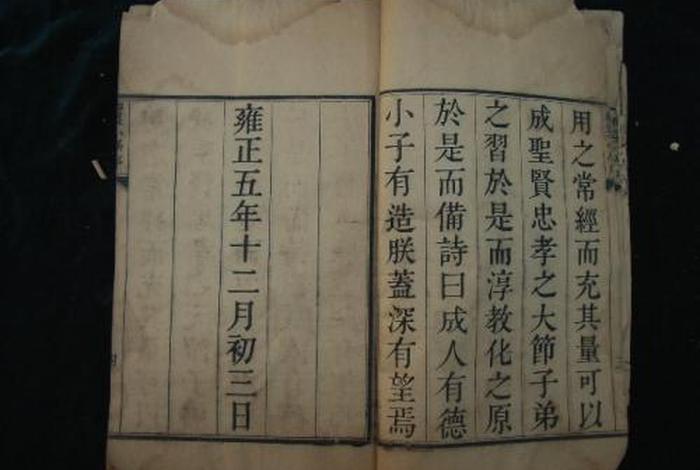 用之常經而充其量可以
成聖賢忠孝之大節子弟
之習於是而淳教化之原
於是而備詩曰成人有德
小子有造朕蓋深有望焉
雍正五年十二月初三日